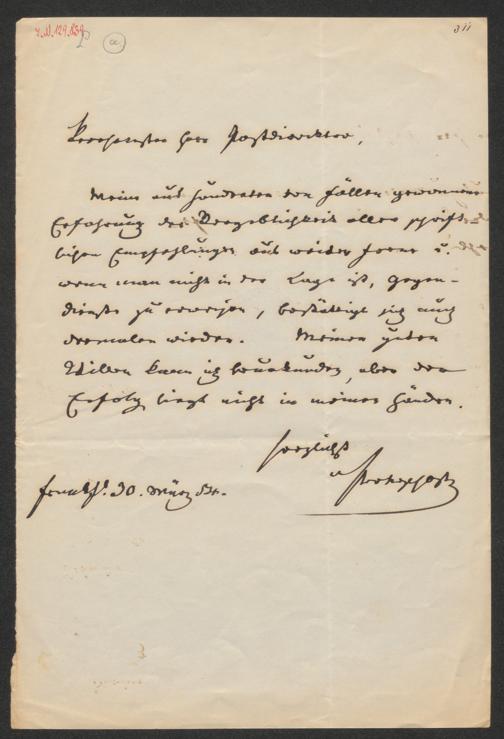 I.N. 129.859
a
311
Verehrtester Herr Postdirecktor,
Meine aus Hunderten von Fällen gewonnene
Erfahrung der Vergeblichkeit aller schrift-
lichen Empfehlungen aus weiter Ferne u.
wenn man nicht in der Lage ist, Gegen-
dienste zu erweisen, bestättigt sich auch
dermalen wieder. Meinen guten
Willen kann ich beurkunden, aber der
Erfolg liegt nicht in meinen Händen.
Herzlichst
Frankf. 30. März